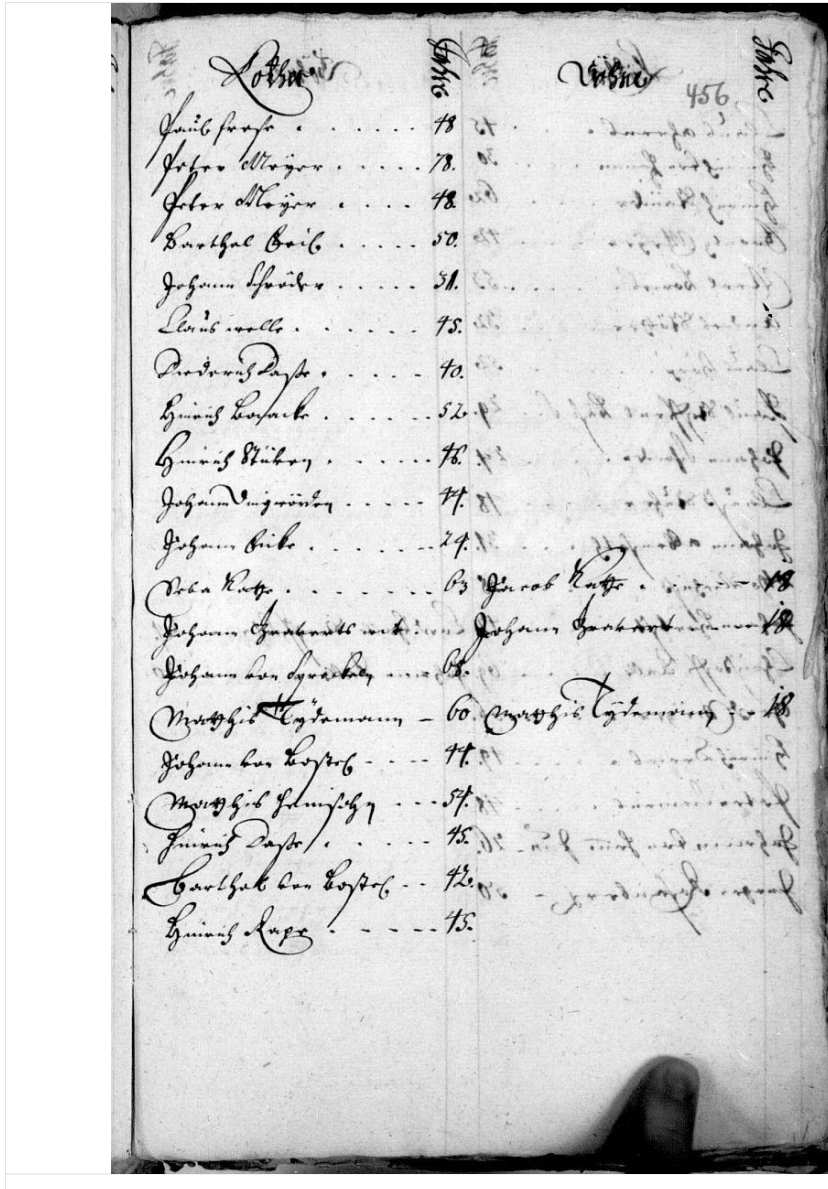 Köther Jahre Söhne Jahre
456
Paul frese 48
Peter Meÿer 78.
Peter Meÿer 48.
Barthel 50.
Johann Schröder 31.
Claus welle 45.
Diederich Dasse 40.
Hinrich 52.
Hinrich Stüven 46.
Johann 44.
Johann 24.
Seba Katte 63 Jacob Katte 18
Johann Graverts wit. Johann Gravert 18
Johann von Spreckeln 68.
Matthis Tÿdemann 60. Matthis Tÿdemann 18
Johann von Bostel 44.
Matthis Heinsohn 54.
Hinrich Dasse 45.
Barthelt von Bostel 42.
Hinrich Rape 45.